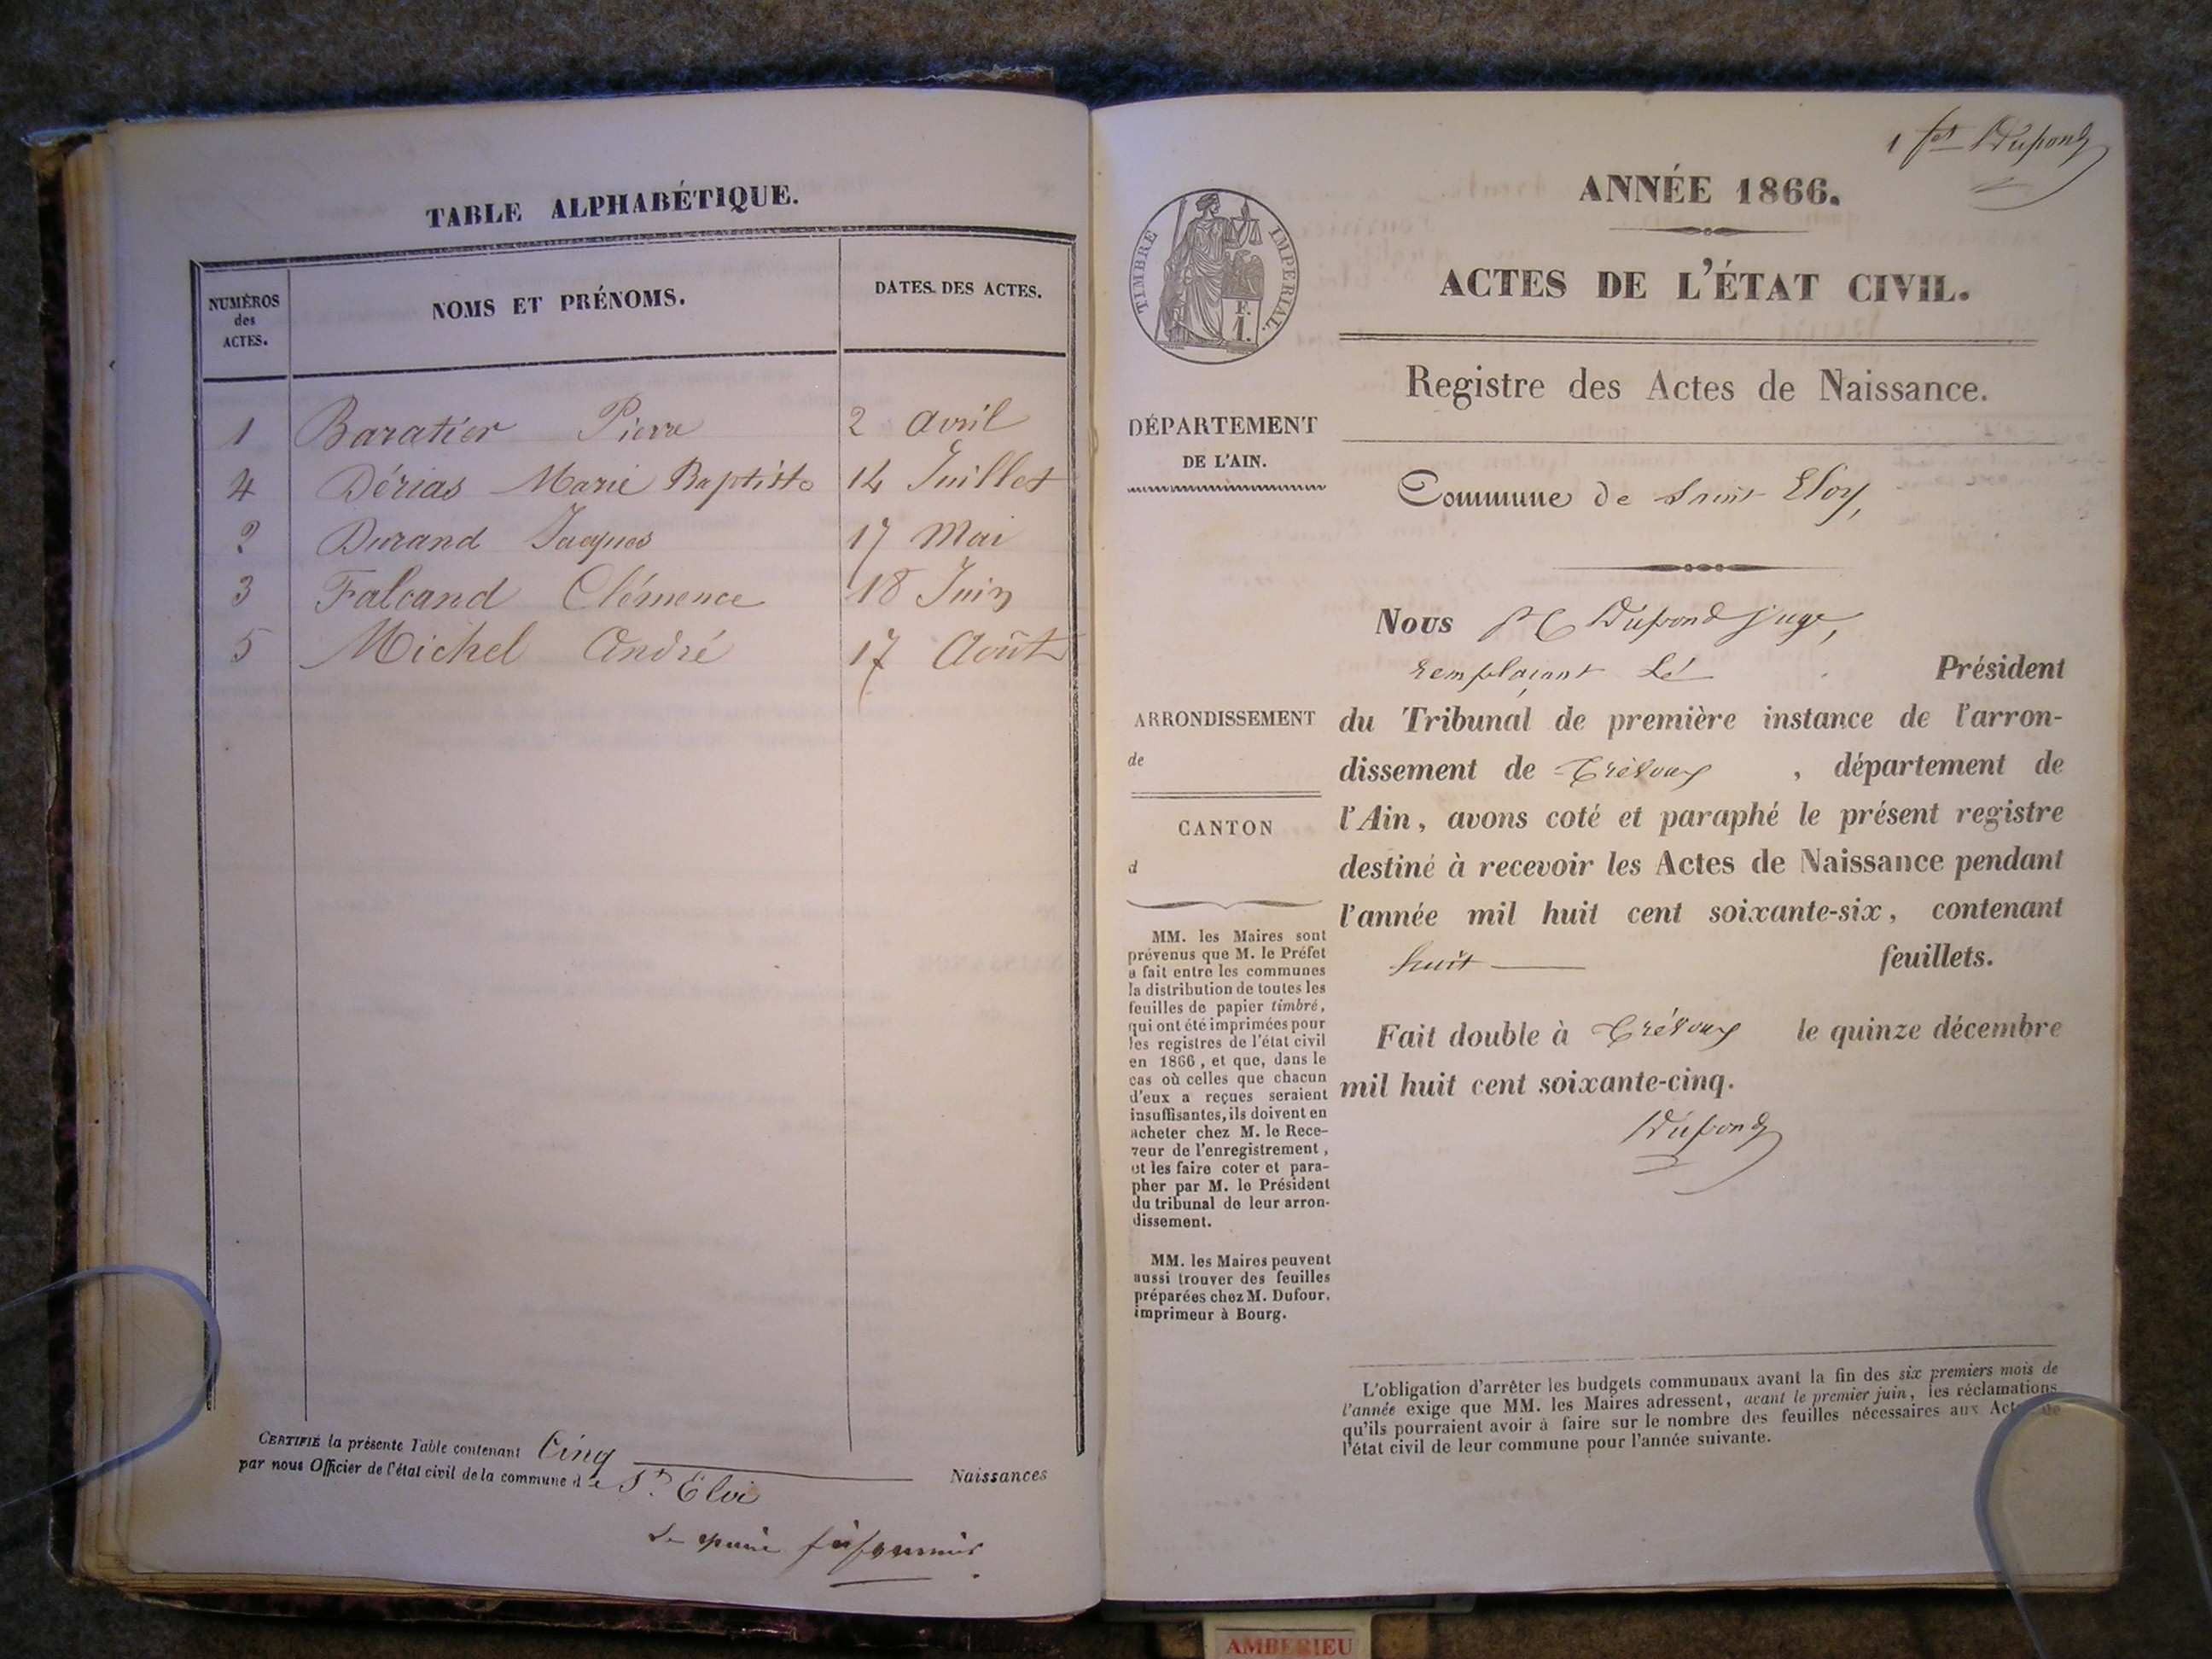 TABLE ALPHABÉTIQUE.
NUMÉROS des ACTES. NOMS ET PRÉNOMS. DATES DES ACTES.
1 Baratier Pierre 2 Avril
4 Dérias Marie Baptiste 14 Juillet
2 Durand Jacques 17 Mai
3 Falcand Clémence 18 Juin
5 Michel André 17 Août
CERTIFIÉ la présente Table contenant Cinq Naissances
par nous Officier de l'état civil de la commune de St. Eloi
Le maire
1 fet Dupond
ANNÉE 1866.
ACTES DE L'ÉTAT CIVIL.
TIMBRE IMPERIAL.
F.
1.
Registre des Actes de Naissance.
DÉPARTEMENT
DE L'AIN.
Commune de Saint Eloy,
Nous Dupond juge,
remplaçant Le Président
du Tribunal de première instance de l'arron-
dissement de Trévoux, département de
l'Ain, avons coté et paraphé le présent registre
destiné à recevoir les Actes de Naissance pendant
l'année mil huit cent soixante-six, contenant
huit feuillets.
Fait double à Trévoux le quinze décembre
mil huit cent soixante-cinq.
Dupond
ARRONDISSEMENT
de
CANTON
d
MM. les Maires sont
prévenus que M. le Préfet
a fait entre les communes
la distribution de toutes les
feuilles de papier timbré,
qui ont été imprimées pour
les registres de l'état civil
en 1866, et que, dans le
cas où celles que chacun
d'eux a reçues seraient
insuffisantes, ils doivent en
acheter chez M. le Rece-
veur de l'enregistrement,
et les faire coter et para-
pher par M. le Président
du tribunal de leur arron-
dissement.
MM. les Maires peuvent
aussi trouver des feuilles
préparées chez M. Dufour,
imprimeur à Bourg.
L'obligation d'arrêter les budgets communaux avant la fin des six premiers mois de
l'année exige que MM. les Maires adressent, avant le premier juin, les réclamations
qu'ils pourraient avoir à faire sur le nombre des feuilles nécessaires aux Actes de
l'état civil de leur commune pour l'année suivante.
AMBERIEU